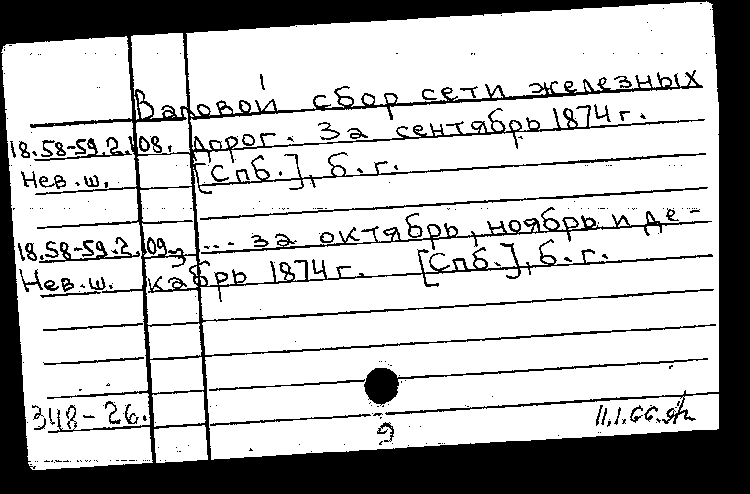 Валовой сбор сети железных
18.58-59.2.108. дорог. За сентябрь 1874 г.
Нев. ш. [Спб.], б. г.
18.58-59.2.109 ... за октябрь, ноябрь и де-
Нев. ш. кабрь 1874 г. [Спб.], б. г.
348-26.
9
11.1.66.